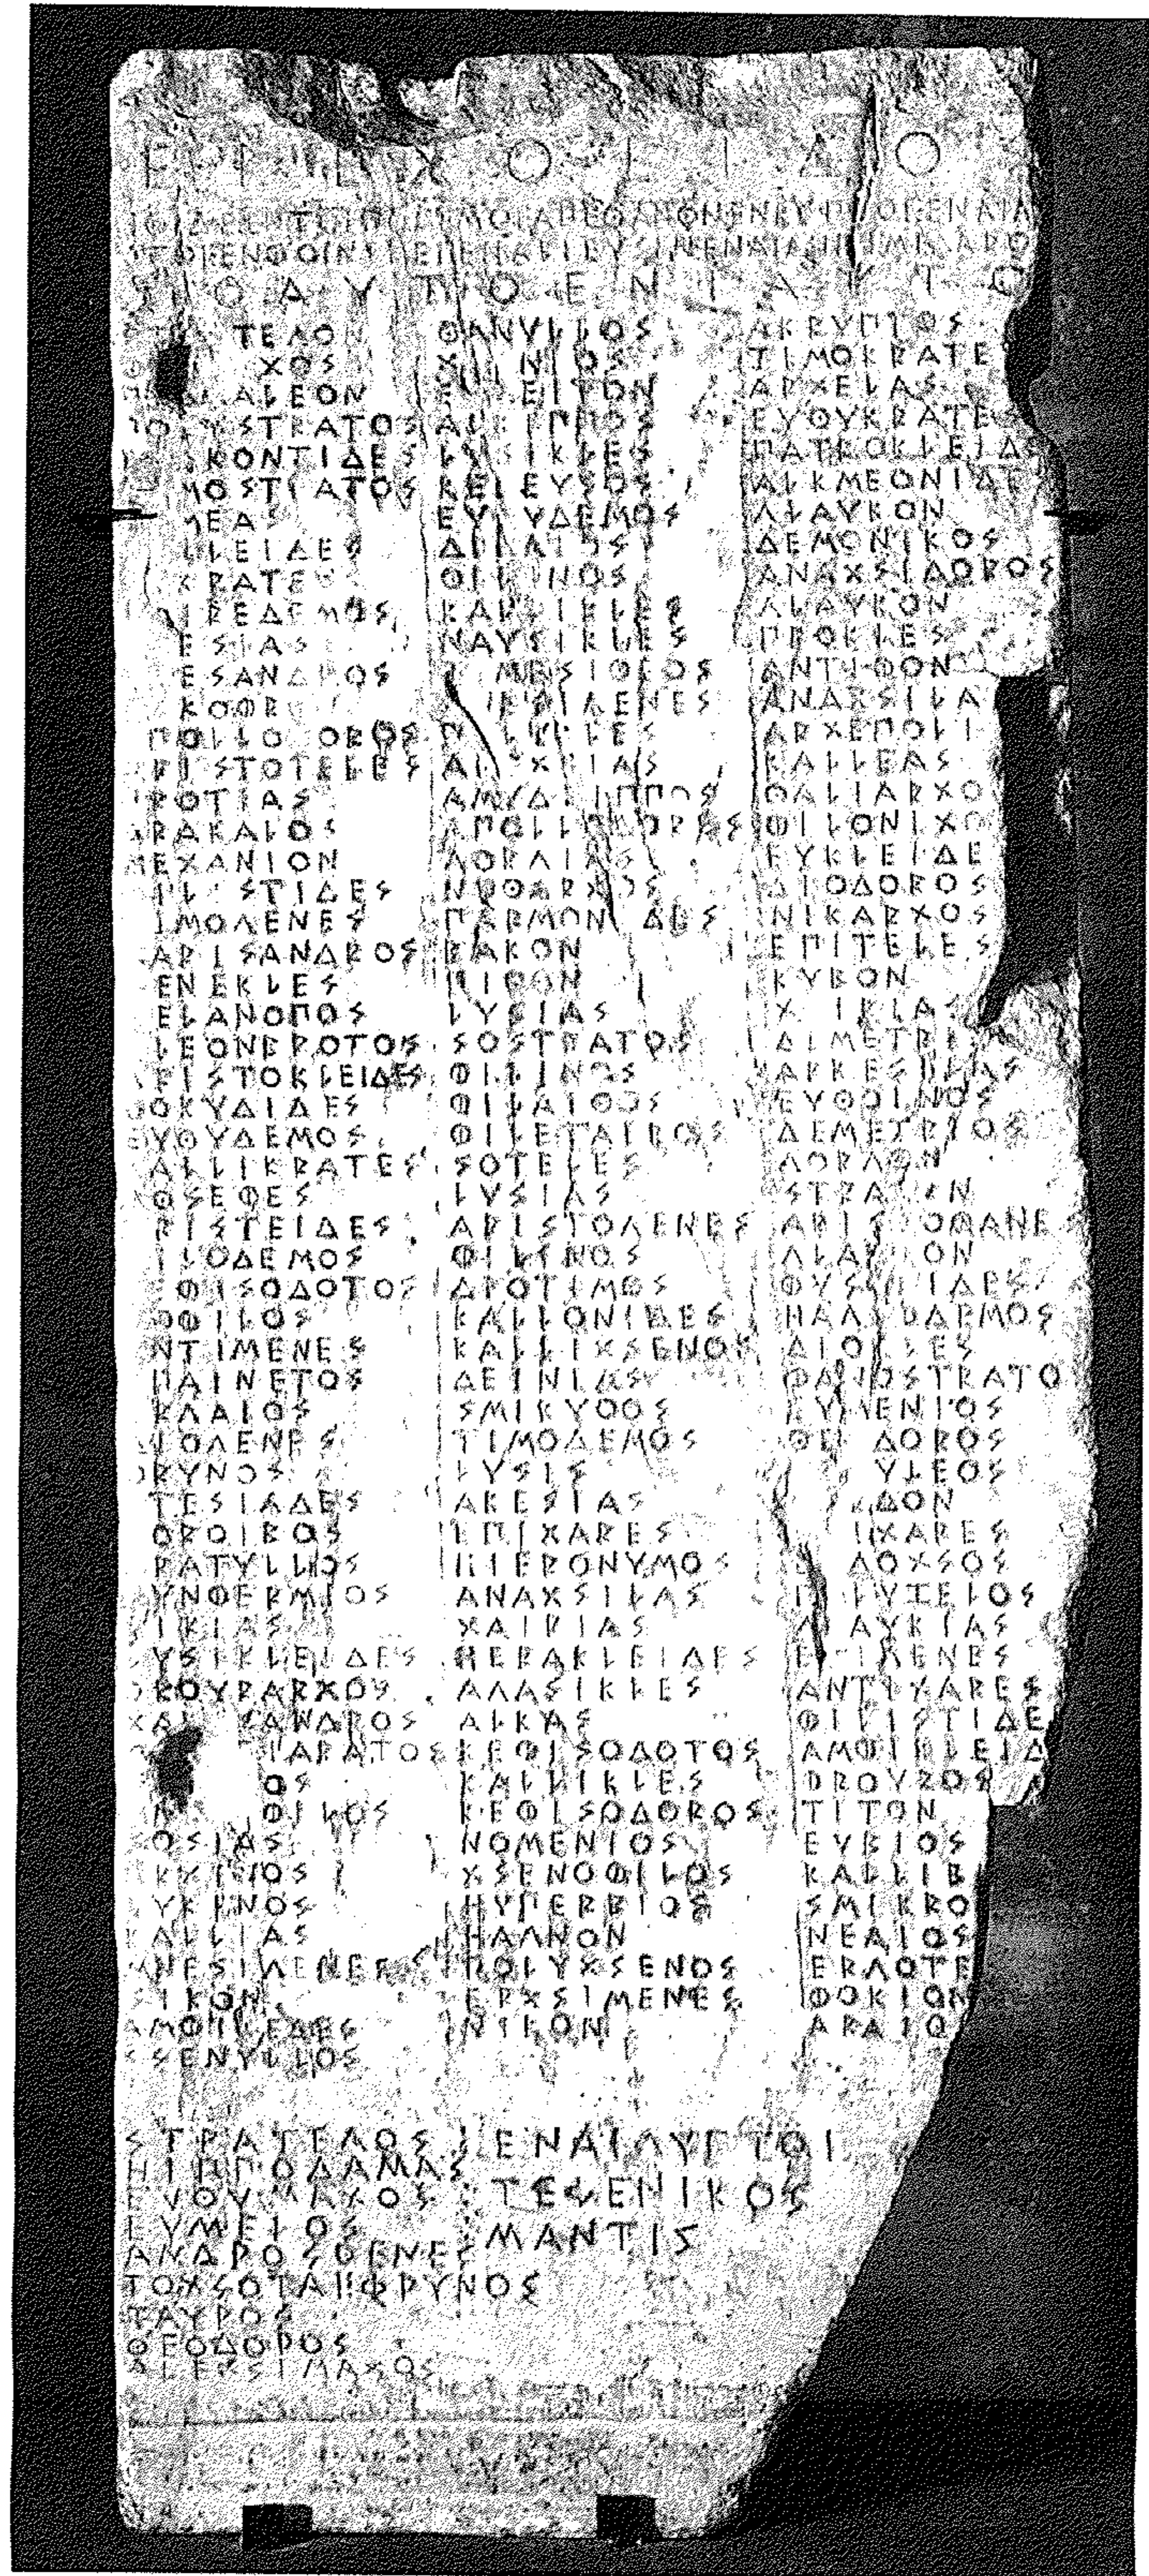 ΕΡΕΧΘΕΙΔΟ
ΕΝ ΤΟΙ ΠΟΛΕΜΟΙ ΑΠΕΘΑΝΟΝ ΕΝ ΚΥΠΡΟΙ ΕΝ ΑΙΛ
ΥΠΤΟΙ ΕΝ ΦΟΙΝΙΚΕΙ ΕΝ ΑΛΙΕΥΣΙΝ ΕΝ ΑΙΛΙΝΕΙ ΜΕΛΑΡΟ
ΣΙ ΤΟ ΑΥΤΟ ΕΝΙΑΥΤΟ
ΤΕΛΟΝ
ΧΟΣ
ΑΛΕΟΝ
ΥΣΤΡΑΤΟΣ
ΚΟΝΤΙΔΕΣ
ΜΟΣΤΡΑΤΟΣ
ΜΕΑΣ
ΛΕΙΔΕΣ
ΚΡΑΤΕΣ
ΡΕΔΕΜΟΣ
ΕΣΙΑΣ
ΕΣΑΝΔΡΟΣ
ΚΟΦΡ
ΠΟΛΛΟ ΟΡΟΣ
ΡΙΣΤΟΤΕΛΕΣ
ΡΟΤΙΑΣ
ΑΡΑΚΑΛΟΣ
ΜΕΧΑΝΙΟΝ
ΙΛ ΣΤΙΔΕΣ
ΙΜΟΛΕΝΕΣ
ΑΡΙΣΑΝΔΡΟΣ
ΕΝΕΚΛΕΣ
ΕΛΑΝΟΠΟΣ
ΛΕΟΝΒΡΟΤΟΣ
ΡΙΣΤΟΚΛΕΙΔΕΣ
ΟΚΥΔΙΔΕΣ
ΕΥΘΥΔΕΜΟΣ
ΑΛΛΙΚΡΑΤΕΣ
ΟΣΕΦΕΣ
ΡΙΣΤΕΙΔΕΣ
ΙΛΟΔΕΜΟΣ
ΦΙΣΟΔΟΤΟΣ
ΟΦΙΛΟΣ
ΝΤΙΜΕΝΕΣ
ΠΑΙΝΕΤΟΣ
ΚΛΑΙΟΣ
ΙΟΛΕΝΕΣ
ΟΡΥΝΟΣ
ΤΕΣΙΑΔΕΣ
ΟΡΟΙΒΟΣ
ΡΑΤΥΛΛΟΣ
ΥΝΘΕΡΜΙΟΣ
ΙΚΙΑΣ
ΥΣΙΚΛΕΙΔΕΣ
ΡΟΥΡΑΡΧΟΣ
ΧΑΙ ΣΑΝΔΡΟΣ
ΑΡΑΤΟΣ
ΟΣ
ΟΦΙΛΟΣ
ΟΣΙΑΣ
ΚΧΣΙΟΣ
ΥΚΙΝΟΣ
ΑΛΛΙΑΣ
ΑΝΕΣΙΛΕΝΕΣ
ΣΙΚΟΝ
ΑΜΦΙΚΕΔΕΣ
ΧΣΕΝΥΛΛΟΣ
ΦΑΝΥΛΛΟΣ
Χ ΝΙΟΣ
ΕΙΤΟΝ
ΑΛΚΙΠΠΟΣ
ΛΥΣΙΚΛΕΣ
ΚΕΛΕΥΣΟΣ
ΕΥΘΥΔΕΜΟΣ
ΔΙΚΑΙΟΣ
ΦΙΛΙΝΟΣ
ΚΑΛΛΙΚΛΕΣ
ΝΑΥΣΙΚΛΕΣ
ΜΝΕΣΙΘΕΟΣ
ΛΕΝΕΣ
ΑΙΣΧΡΙΑΣ
ΑΜΥΔΡΙΠΠΟΣ
ΑΠΟΛΛΟΔΟΡΟΣ
ΛΟΡΛΙΑΣ
ΝΥΘΑΡΧΟΣ
ΠΑΡΜΟΝΙΔΕΣ
ΒΑΚΟΝ
ΠΙΘΟΝ
ΛΥΣΙΑΣ
ΣΟΣΤΡΑΤΟΣ
ΦΙΛΙΝΟΣ
ΦΙΛΑΙΘΟΣ
ΦΙΛΕΤΑΙΡΟΣ
ΣΟΤΕΛΕΣ
ΛΥΣΙΑΣ
ΑΡΙΣΤΟΛΕΝΕΣ
ΦΙΛΙΝΟΣ
ΔΡΟΤΙΜΟΣ
ΚΑΛΛΟΝΙΔΕΣ
ΚΑΛΛΙΧΣΕΝΟΣ
ΔΕΙΝΙΑΣ
ΣΜΙΚΥΘΟΣ
ΤΙΜΟΔΕΜΟΣ
ΛΥΣΙΣ
ΑΚΕΣΙΑΣ
ΕΠΙΧΑΡΕΣ
ΗΙΕΡΟΝΥΜΟΣ
ΑΝΑΧΣΙΛΑΣ
ΧΑΙΡΙΑΣ
ΗΕΡΑΚΛΕΙΔΕΣ
ΑΛΑΣΙΚΛΕΣ
ΑΛΚΙΑΣ
ΚΕΦΙΣΟΔΟΤΟΣ
ΚΑΛΛΙΚΛΕΣ
ΚΕΦΙΣΟΔΟΡΟΣ
ΝΟΜΕΝΙΟΣ
ΧΣΕΝΟΦΙΛΟΣ
ΗΥΠΕΡΒΙΟΣ
ΗΑΛΝΟΝ
ΠΟΛΥΧΣΕΝΟΣ
ΕΡΧΣΙΜΕΝΕΣ
ΝΙΚΟΝ
ΑΚΡΥΠΤΟΣ
ΤΙΜΟΚΡΑΤΕ
ΑΡΧΕΛΑΣ
ΕΥΘΥΚΡΑΤΕΣ
ΠΑΤΡΟΚΛΕΙΔΕΣ
ΑΛΚΜΕΟΝΙΔΕΣ
ΛΛΑΥΚΟΝ
ΔΕΜΟΝΙΚΟΣ
ΑΝΑΧΣΙΔΟΡΟΣ
ΛΛΑΥΚΟΝ
ΠΡΟΚΛΕΣ
ΑΝΤΙΦΟΝ
ΑΝΑΧΣΙΛΑ
ΑΡΧΕΠΟΛΙ
ΚΑΛΛΕΑΣ
ΦΑΛΙΑΡΧΟ
ΦΙΛΟΝΙΧΟ
ΕΥΚΛΕΙΔΕ
ΔΙΟΔΟΡΟΣ
ΝΙΚΑΡΧΟΣ
ΕΠΙΤΕΛΕΣ
ΚΥΒΟΝ
Χ ΙΡΙΑΣ
ΔΕΜΕΤΡΙ
ΑΡΚΕΣΙΛΑΣ
ΕΥΘΟΙΝΟΣ
ΔΕΜΕΤΡΙΟΣ
ΛΟΡΛΟΝ
ΣΤΡΑΤΟΝ
ΑΡΙΣΤΟΦΑΝΕΣ
ΛΛΑΥΚΟΝ
ΦΥΣΟΝΙΔΕΣ
ΗΑΛΥΔΑΡΜΟΣ
ΔΙΟΚΛΕΣ
ΦΑΝΟΣΤΡΑΤΟ
ΕΥΜΕΝΙΟΣ
ΘΕΟΔΟΡΟΣ
ΥΛΕΟΣ
ΔΟΝ
ΙΧΑΡΕΣ
ΔΟΧΣΟΣ
ΛΥΖΕΛΟΣ
ΛΛΑΥΚΙΑΣ
ΕΠΙΛΕΝΕΣ
ΑΝΤΙΧΑΡΕΣ
ΦΙΛΙΣΤΙΔΕ
ΑΜΦΙΚΛΕΙΔ
ΦΡΟΥΡΟΣ
ΤΙΤΟΝ
ΕΥΒΙΟΣ
ΚΑΛΛΙΒ
ΣΜΙΚΡΟ
ΝΕΑΙΟΣ
ΕΡΛΟΤΕ
ΦΟΚΙΟΝ
ΑΡΑΙΟ
ΣΤΡΑΤΕΛΟΣ
ΗΙΠΠΟΔΑΜΑΣ
ΕΥΘΥΜΑΧΟΣ
ΕΥΜΕΛΟΣ
ΑΝΔΡΟΣΘΕΝΕΣ
ΤΟΧΣΟΤΑΙ : ΦΡΥΝΟΣ
ΤΑΥΡΟΣ
ΘΕΟΔΟΡΟΣ
ΑΛΕΧΣΙΜΑΧΟΣ
ΕΝ ΑΙΛΥΠΤΟΙ
ΤΕΛΕΝΙΚΟΣ
ΜΑΝΤΙΣ